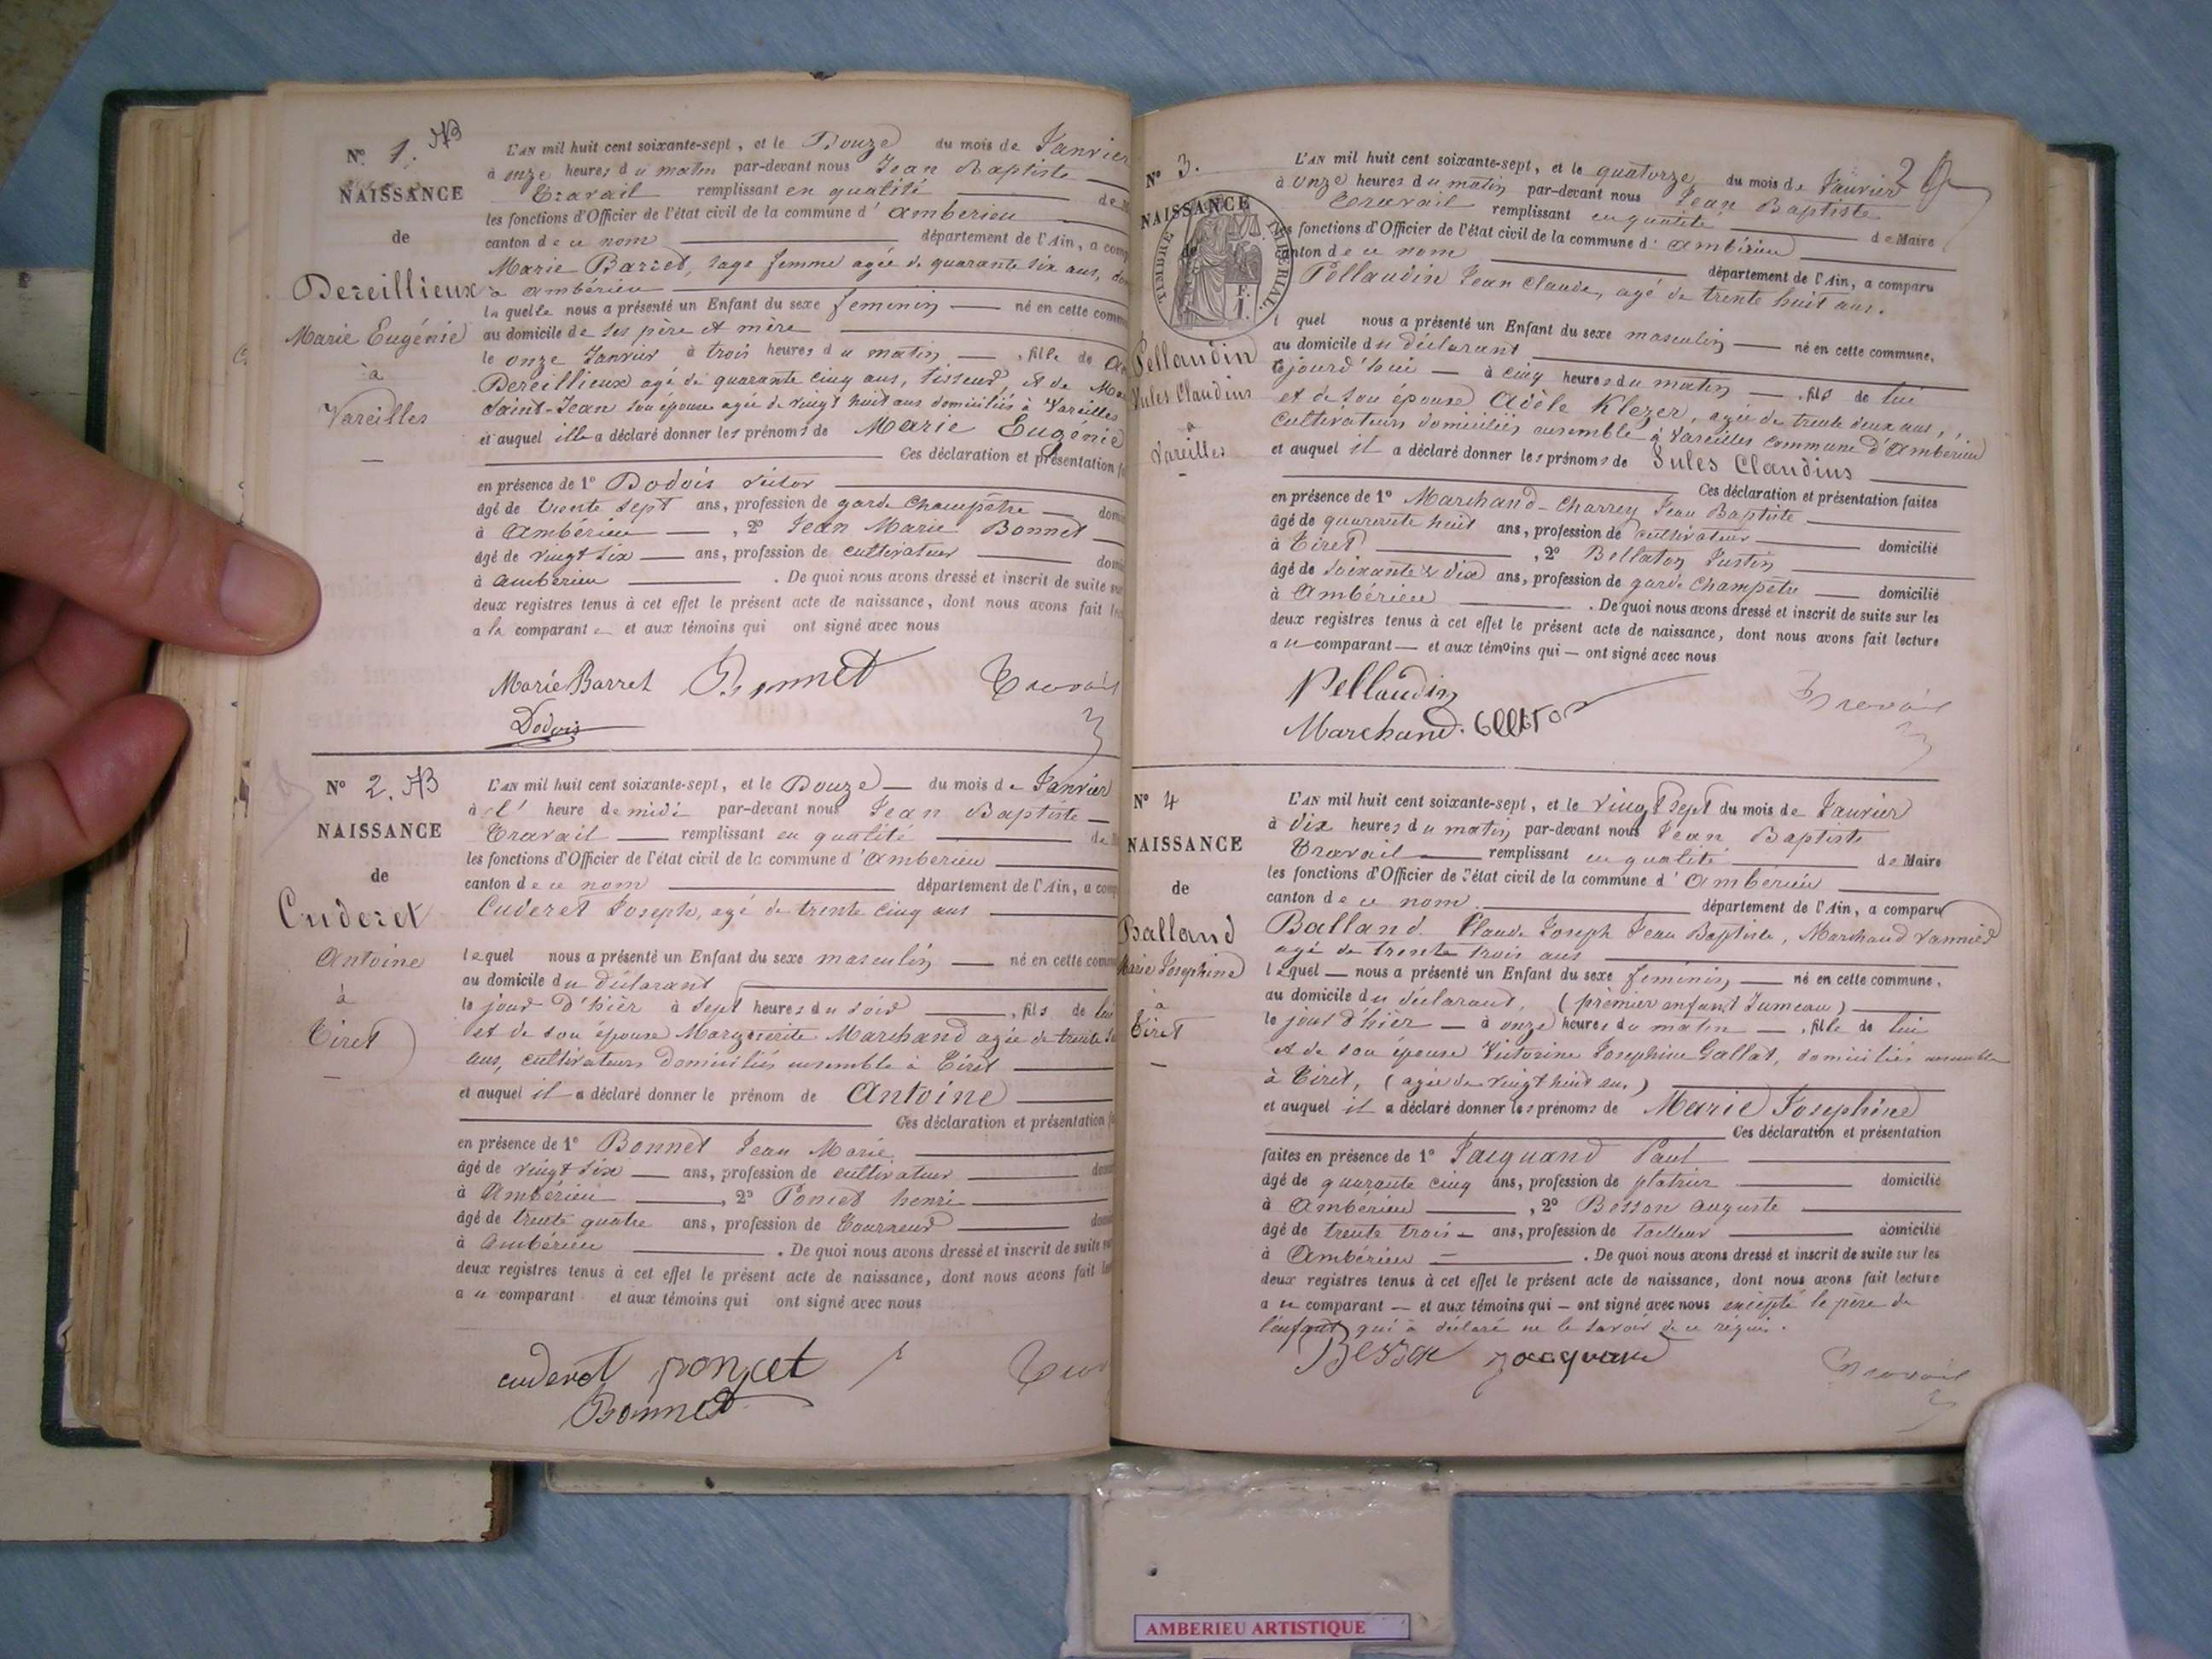 N° 1. AB
NAISSANCE
de
Dereillieux
Marie Eugénie
à
Vareilles
L'AN mil huit cent soixante-sept, et le Douze du mois de Janvier
à onze heures du matin par-devant nous Jean Baptiste
Travail remplissant en qualité de
les fonctions d'Officier de l'état civil de la commune d'Ambérieu
canton de ce nom département de l'Ain, a comp
Marie Barret, sage femme agée de quarante six ans, do
à Ambérieu
laquelle nous a présenté un Enfant du sexe féminin né en cette comm
au domicile de ses père et mère
le onze Janvier à trois heures du matin, fille de
Dereillieux agé de quarante cinq ans, tisseur, et de
Saint-Jean son épouse agée de vingt huit ans domiciliés à Vareilles
et auquel elle a déclaré donner les prénoms de Marie Eugénie
Ces déclaration et présentation
en présence de 1° Dodois Victor
âgé de trente sept ans, profession de garde champêtre domi
à Ambérieu, 2° Jean Marie Bonnet
âgé de vingt six ans, profession de cultivateur domi
à Ambérieu. De quoi nous avons dressé et inscrit de suite sur
deux registres tenus à cet effet le présent acte de naissance, dont nous avons fait lec
a la comparante et aux témoins qui ont signé avec nous
Marie Barret Bonnet Travail
Dodois
N° 2. AB
NAISSANCE
de
Cuderet
Antoine
à
Tiret
L'AN mil huit cent soixante-sept, et le Douze du mois de Janvier
à l'heure de midi par-devant nous Jean Baptiste
Travail remplissant en qualité de
les fonctions d'Officier de l'état civil de la commune d'Ambérieu
canton de ce nom département de l'Ain, a comp
Cuderet Joseph, agé de trente cinq ans
lequel nous a présenté un Enfant du sexe masculin né en cette comm
au domicile du déclarant
le jour d'hier à sept heures du soir, fils de lui
et de son épouse Marguerite Marchand agée de trente
ans, cultivateurs domiciliés ensemble à Tiret
et auquel il a déclaré donner le prénom de Antoine
Ces déclaration et présentation
en présence de 1° Bonnet Jean Marie
âgé de vingt six ans, profession de cultivateur domi
à Ambérieu, 2° Poncet henri
âgé de trente quatre ans, profession de Tourneur domi
à Ambérieu. De quoi nous avons dressé et inscrit de suite sur
deux registres tenus à cet effet le présent acte de naissance, dont nous avons fait lec
a u comparant et aux témoins qui ont signé avec nous
cuderet poncet
Bonnet
N° 3.
NAISSANCE
de
TIMBRE IMPERIAL
Pellaudin
Jules Claudius
à
Vareilles
2
L'AN mil huit cent soixante-sept, et le quatorze du mois de Janvier
à onze heures du matin par-devant nous Jean Baptiste
Travail remplissant en qualité de Maire
les fonctions d'Officier de l'état civil de la commune d'Ambérieu
canton de ce nom département de l'Ain, a comparu
Pellaudin Jean Claude, agé de trente huit ans.
lequel nous a présenté un Enfant du sexe masculin né en cette commune,
au domicile du déclarant
cejourd'hui à cinq heures du matin, fils de lui
et de son épouse Adèle Klezer, agée de trente deux ans,
cultivateurs domiciliés ensemble à Vareilles commune d'Ambérieu
et auquel il a déclaré donner les prénoms de Jules Claudius
Ces déclaration et présentation faites
en présence de 1° Marchand-Charrey Jean Baptiste
âgé de quarante huit ans, profession de cultivateur domicilié
à Tiret, 2° Bellaton Justin
âgé de soixante & dix ans, profession de garde champêtre domicilié
à Ambérieu. De quoi nous avons dressé et inscrit de suite sur les
deux registres tenus à cet effet le présent acte de naissance, dont nous avons fait lecture
a u comparant et aux témoins qui ont signé avec nous
Pellaudin Travail
Marchand.
N° 4
NAISSANCE
de
Balland
Marie Josephine
à
Tiret
L'AN mil huit cent soixante-sept, et le vingt sept du mois de Janvier
à dix heures du matin par-devant nous Jean Baptiste
Travail remplissant en qualité de Maire
les fonctions d'Officier de l'état civil de la commune d'Ambérieu
canton de ce nom département de l'Ain, a comparu
Balland Claude Joseph Jean Baptiste, Marchand Vannier
agé de trente trois ans
lequel nous a présenté un Enfant du sexe féminin né en cette commune,
au domicile du déclarant, (premier enfant Jumeau)
le jour d'hier à onze heures du matin, fille de lui
et de son épouse Victorine Josephine Gallat, domiciliés ensemble
à Tiret, (agée de vingt huit ans)
et auquel il a déclaré donner les prénoms de Marie Josephine
Ces déclaration et présentation
faites en présence de 1° Jacquand Paul
âgé de quarante cinq ans, profession de platrier domicilié
à Ambérieu, 2° Besson auguste
âgé de trente trois ans, profession de Tailleur domicilié
à Ambérieu. De quoi nous avons dressé et inscrit de suite sur les
deux registres tenus à cet effet le présent acte de naissance, dont nous avons fait lecture
a u comparant et aux témoins qui ont signé avec nous excepté le père de
l'enfant qui a déclaré ne le savoir de ce réquis.
Besson Jacquand Travail
AMBERIEU ARTISTIQUE